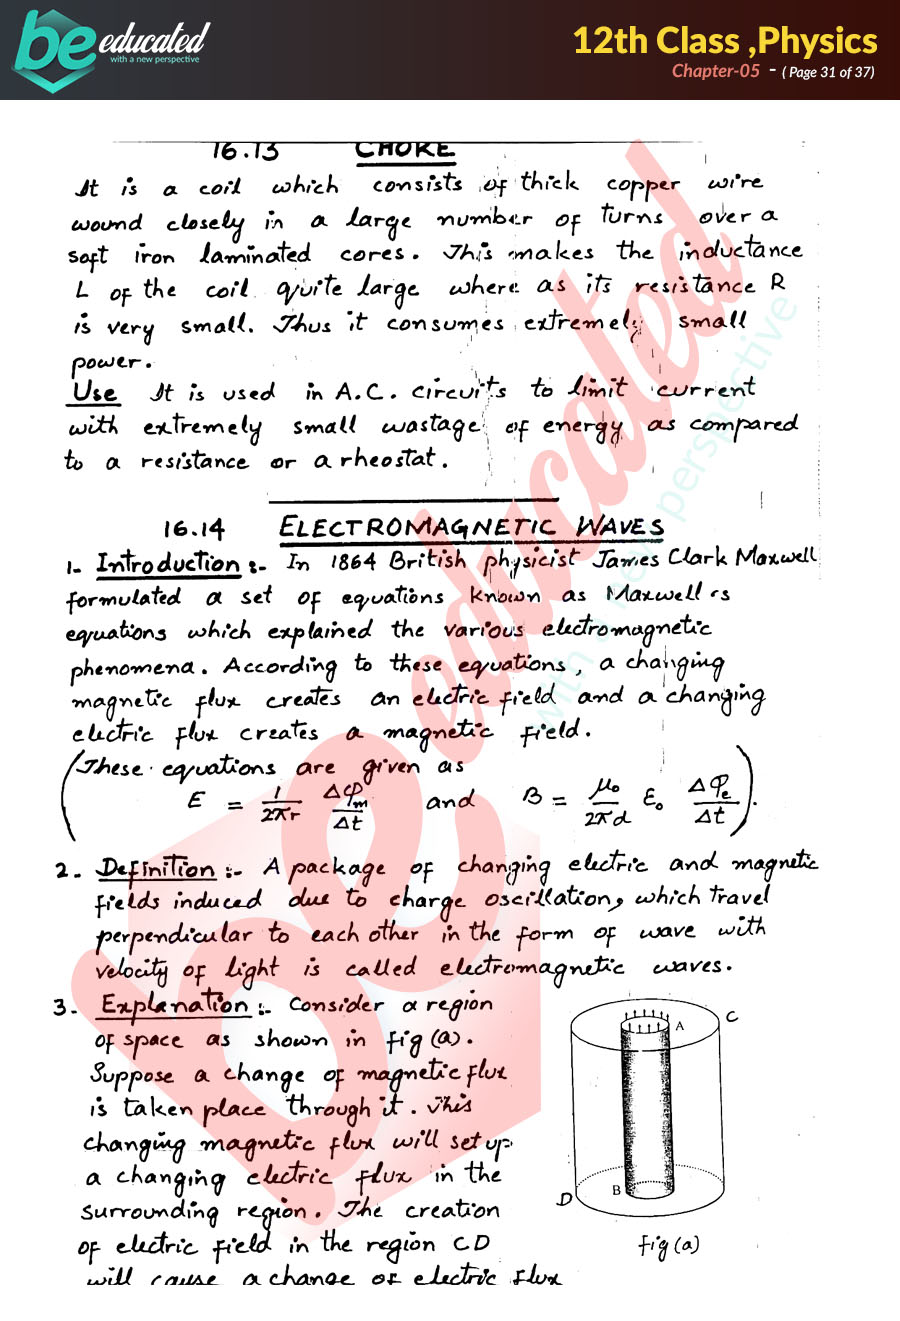 be educated
with a new perspective
12th Class ,Physics
Chapter-05 - ( Page 31 of 37)
16.13 CHOKE
It is a coil which consists of thick copper wire
wound closely in a large number of turns over a
soft iron laminated cores. This makes the inductance
L of the coil quite large where as its resistance R
is very small. Thus it consumes extremely small
power.
Use It is used in A.C. circuits to limit current
with extremely small wastage of energy as compared
to a resistance or a rheostat.
16.14 ELECTROMAGNETIC WAVES
1- Introduction :- In 1864 British physicist James Clark Maxwell
formulated a set of equations known as Maxwell's
equations which explained the various electromagnetic
phenomena. According to these equations, a changing
magnetic flux creates an electric field and a changing
electric flux creates a magnetic field.
(These equations are given as
E = 1/2πr Δφm/Δt and B = μo/2πd εo Δφe/Δt).
2. Definition :- A package of changing electric and magnetic
fields induced due to charge oscillation, which travel
perpendicular to each other in the form of wave with
velocity of light is called electromagnetic waves.
3. Explanation :- Consider a region
of space as shown in fig (a).
Suppose a change of magnetic flux
is taken place through it. This
changing magnetic flux will set up
a changing electric flux in the
surrounding region. The creation
of electric field in the region CD
will cause a change of electric flux
A
C
B
D
fig (a)
be educated
with a new perspective